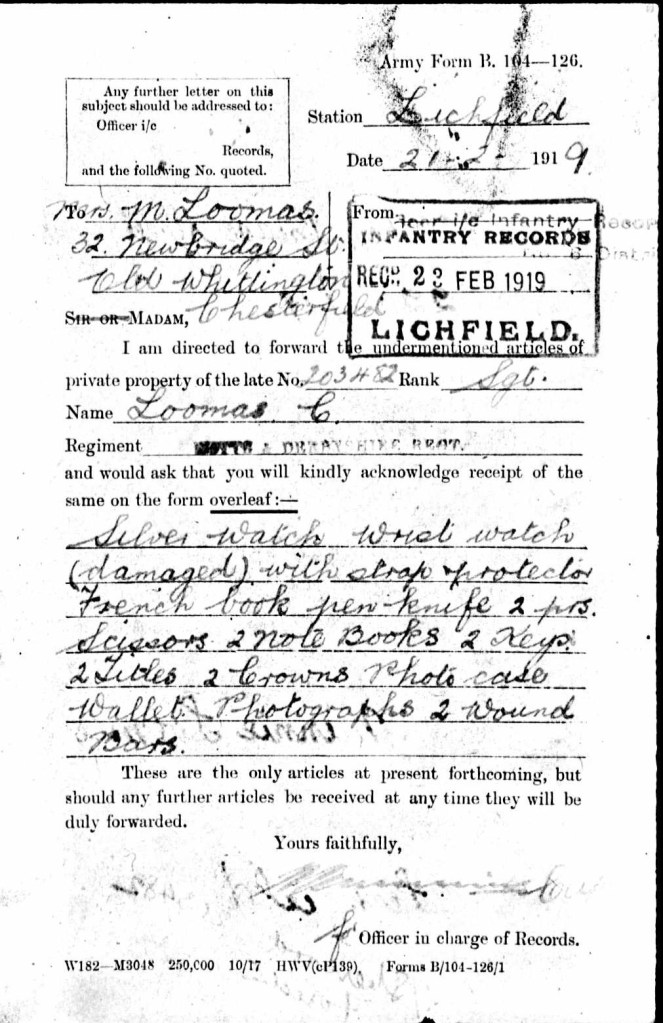 Army Form B. 104—126.
Any further letter on this
subject should be addressed to:
Officer i/c
Records,
and the following No. quoted.
Station Lichfield
Date 21-2- 1919.
To Mrs. M. Loomas.
32. Newbridge St.
Old Whittington
Chesterfield
From
Officer i/c Infantry Records
INFANTRY RECORDS
RECD. 23 FEB 1919
LICHFIELD.
SIR OR MADAM,
I am directed to forward the undermentioned articles of
private property of the late No. 203482 Rank Sgt.
Name Loomas C.
Regiment NOTTS & DERBYSHIRE REGT.
and would ask that you will kindly acknowledge receipt of the
same on the form overleaf:—
Silver Watch Wrist watch
(damaged) with strap & protector
French book pen-knife 2 prs.
Scissors 2 Note Books 2 Keys.
2 Titles 2 Crowns Photo case
Wallet Photographs 2 Wound
Bars.
These are the only articles at present forthcoming, but
should any further articles be received at any time they will be
duly forwarded.
Yours faithfully,
f Officer in charge of Records.
W182—M3048 250,000 10/17 HWV(cP139). Forms B/104-126/1